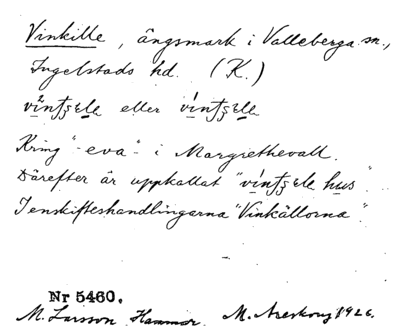 Vinkille, ängsmark i Valleberga sn.,
Ingelstads hd. (K.)
eller
Kring "eva" i Margrethevall.
Därefter är uppkallat hus".
I enskifteshandlingarna "Vinkällorna".
Nr 5460.
M. Larsson Hammar. M. Areskoug 1926.